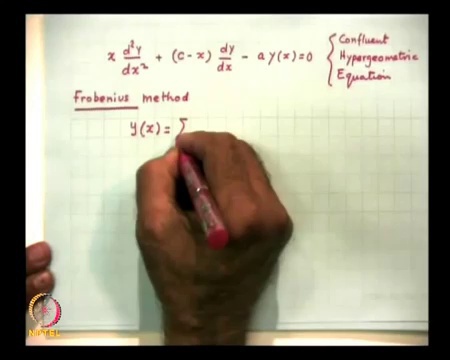 x d²y/dx² + (c-x) dy/dx - a y(x) = 0 { Confluent Hypergeometric Equation
Frobenius method
y(x) = Σ
NPTEL